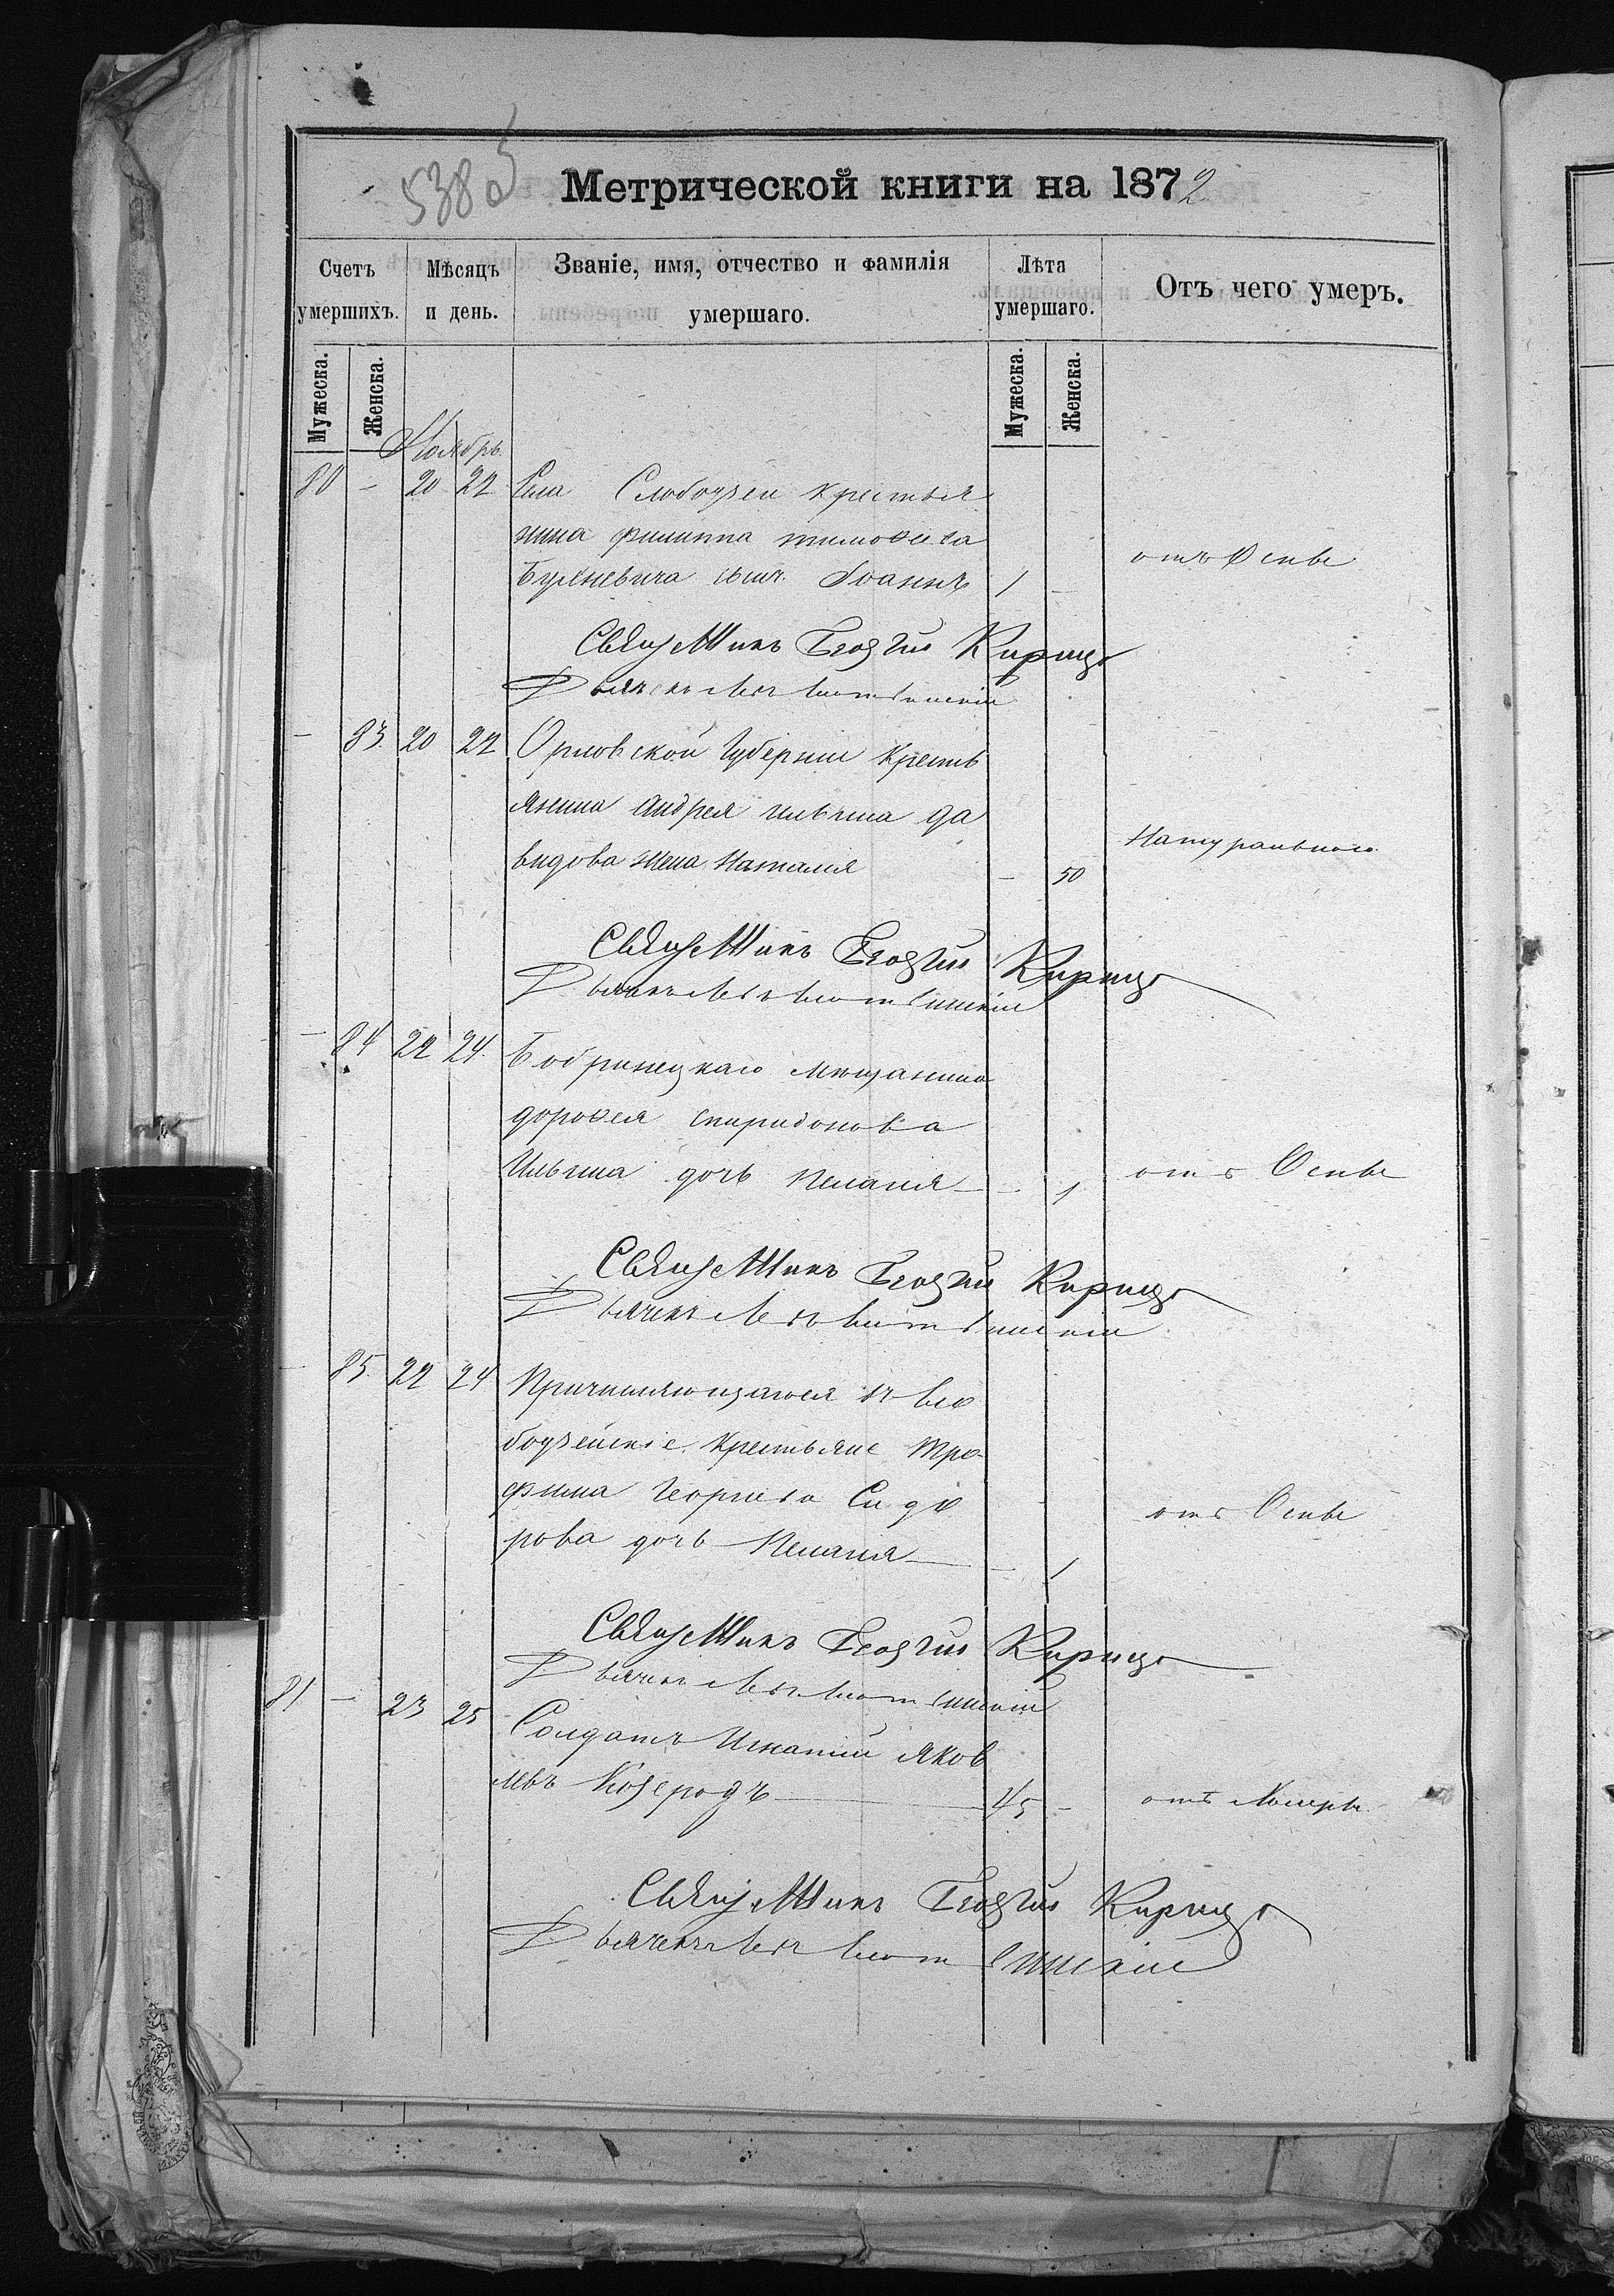 538 об
Метрической книги на 1872
Счетъ умершихъ.
Мѣсяцъ и день.
Званіе, имя, отчество и фамилія умершаго.
Лѣта умершаго.
Отъ чего умеръ.
Мужеска.
Женска.
Мужеска.
Женска.
Ноябрь
80 - 20 22 Села Слободзеи крестья
нина филиппа тимоѳеева
сынъ Іоаннъ 1 - отъ Оспы
Священникъ Георгій
Дьячекъ Левъ
- 83. 20 22 Орловской Губерніи крест
янина Андрея ильина да
видова жена Наталія - 50 Натуральною
Священникъ Георгій
Дьячекъ Левъ
- 84 22 24. Бобринецкаго мещанина
дороѳея спиридонова
Ильина дочь Пелагія - 1 отъ Оспы
Священникъ Георгій
Дьячекъ Левъ
- 85. 22 24 Причисляющагося къ сло
бодзейскіе крестьяне Тро
фима Георгиева Сидо
рова дочь Пелагія - 1 отъ Оспы
Священникъ Георгій
Дьячекъ Левъ
81 - 23 25 Солдатъ Игнатій Яков
левъ Козеродъ 45 - отъ Холеры
Священникъ Георгій
Дьячекъ Левъ